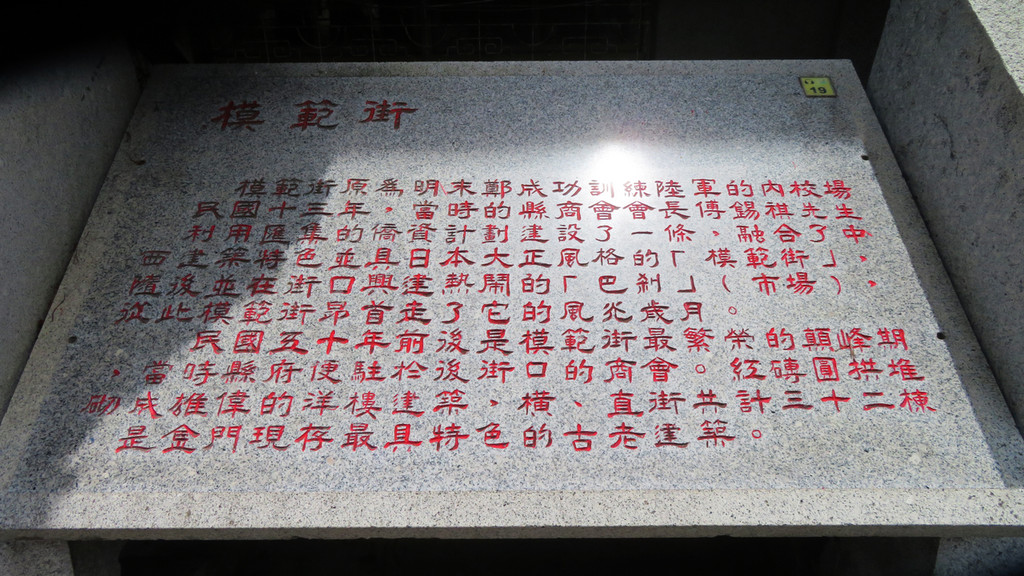 19
模範街
模範街原為明末鄭成功訓練陸軍的內校場
民國十三年，當時的縣商會會長傅錫祺先生
利用匯集的僑資計劃建設了一條，融合了中
西建築特色並具日本大正風格的「模範街」，
隨後並在街口興建熱鬧的「巴剎」（市場），
從此模範街昂首走了它的風光歲月。
民國五十年前後是模範街最繁榮的顛峰期
，當時縣府便駐於後街口的商會。紅磚圓拱堆
砌成雄偉的洋樓建築，橫、直街共計三十二棟
是金門現存最具特色的古老建築。